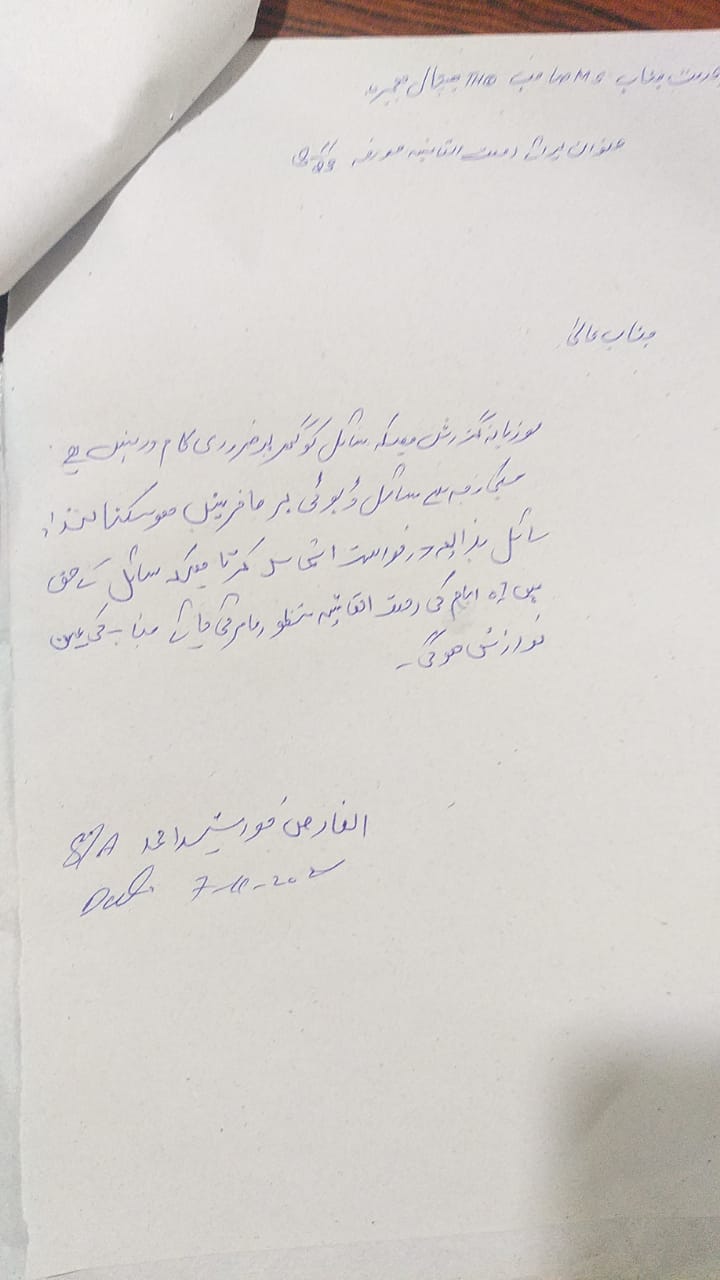 خدمت جناب MS صاحب THQ ہسپتال
عنوان برائے رخصت اتفاقیہ مورخہ
جناب عالی
مودبانہ گزارش ہیکہ سائل کو گھر پر ضروری کام درپیش ہے
جسکی وجہ سے سائل ڈیوٹی پر حاضر نہیں ہو سکتا لہٰذا
سائل بذریعہ درخواست التماس کرتا ہیکہ سائل کے حق
میں ایام کی رخصت اتفاقیہ منظور فرمائی جائے جناب کی عین
نوازش ہوگی۔
العارض خورشید احمد S/A
Date 7-11-202